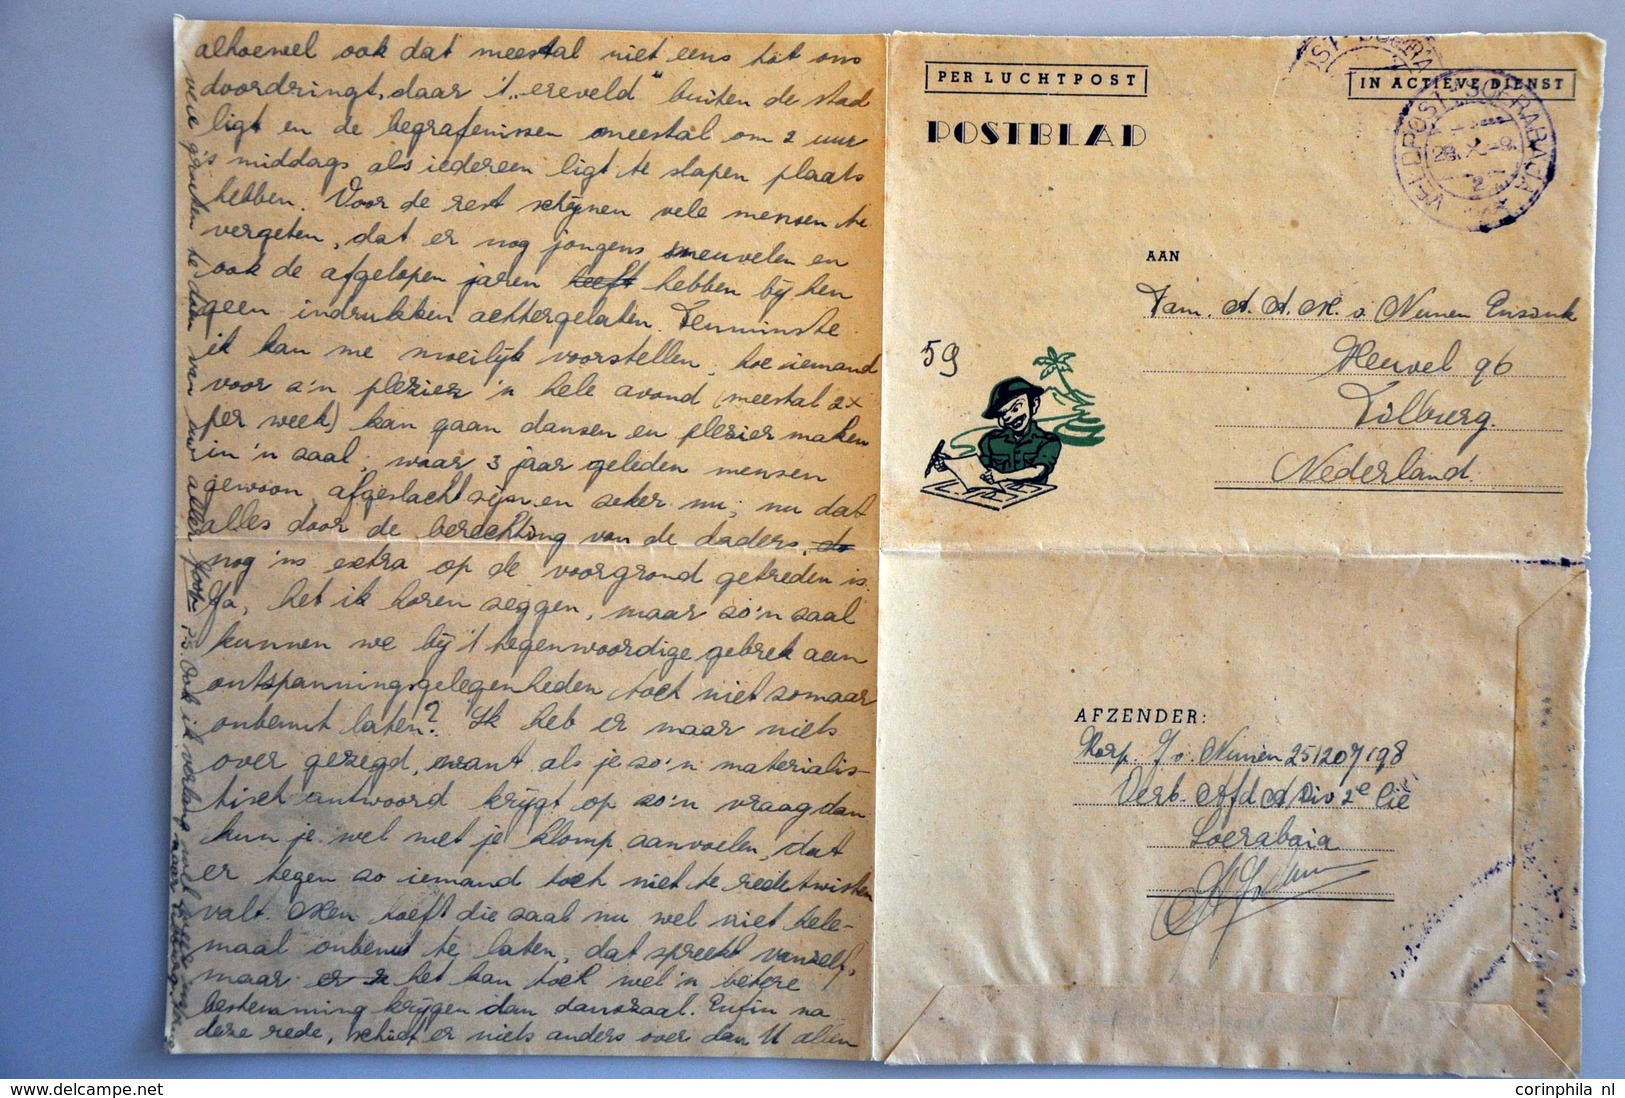 alhoewel ook dat meestal niet eens tot ons
doordringt, daar 't "ereveld" buiten de stad
ligt en de begrafenissen meestal om 2 uur
's middags als iedereen ligt te slapen plaats
hebben. Voor de rest schijnen vele mensen te
vergeten, dat er nog jongens sneuvelen en
ook de afgelopen jaren heeft hebben bij hen
geen indrukken achtergelaten. Tenminste
ik kan me moeilijk voorstellen, hoe iemand
voor z'n plezier 'n hele avond (meestal 2x
per week) kan gaan dansen en plezier maken
in 'n zaal, waar 3 jaar geleden mensen
gewoon afgeslacht zijn en zeker nu, nu dat
alles door de berechting van de daders, de
nog 'ns extra op de voorgrond getreden is.
Ja, het ik horen zeggen, maar zo'n zaal
kunnen we bij 't tegenwoordige gebrek aan
ontspanningsgelegenheden toch niet zomaar
onbenut laten? Ik heb er maar niets
over gezegd, want als je zo'n materialis-
tisch antwoord krijgt op zo'n vraag dan
kun je wel met je klomp aanvoelen, dat
er tegen zo iemand toch niet te redetwisten
valt. Men hoeft die zaal nu wel niet hele-
maal onbenut te laten, dat spreekt vanzelf,
maar er z het kan toch wel 'n betere
bestemming krijgen dan danszaal. Enfin na
deze rede, schiet er niets anders over dan U allen
vele groeten te doen van uw aller Joop
P.S. Ook ik verlang wel weer
naar Tilburg.
PER LUCHTPOST
IN ACTIEVE DIENST
POSTBLAD
VELDPOST SOERABAJA
28.X.-9.
2
AAN
Fam. A. A. M. v. Nunen Ensinck
Heuvel 96
Tilburg.
Nederland.
59
AFZENDER:
Korp. J. v. Nunen 251207198
Verb. Afd A Div 2e Cie
Soerabaia
corinphila nl